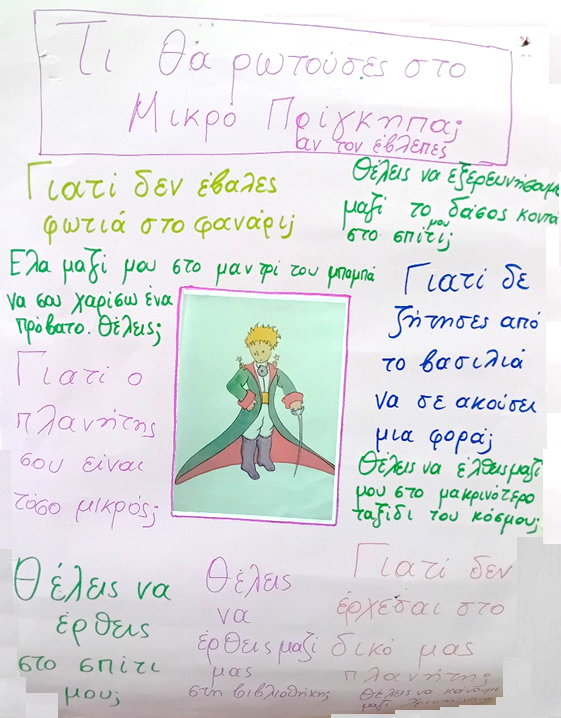 Τι θα ρωτούσες στο
Μικρό Πρίγκηπα;
αν τον έβλεπες
Γιατί δεν έβαλες
φωτιά στο φανάρι;
Θέλεις να εξερευνήσουμε
μαζί το δάσος κοντά
στο σπίτι μου;
Ελα μαζί μου στο μαντρί του μπαμπά
να σου χαρίσω ένα
πρόβατο. Θέλεις;
Γιατί δε
ζήτησες από
το βασιλιά
να σε ακούσει
μια φορά;
Γιατί ο
πλανήτης
σου είναι
τόσο μικρός;
Θέλεις να έλθεις μαζί
μου στο μακρινότερο
ταξίδι του κόσμου;
Θέλεις να
έρθεις
στο σπίτι
μου;
Θέλεις
να
έρθεις μαζί
μας
στη βιβλιοθήκης
Γιατί δεν
έρχεσαι στο
δικό μας
πλανήτη;
Θέλεις να κάνουμε
μαζί